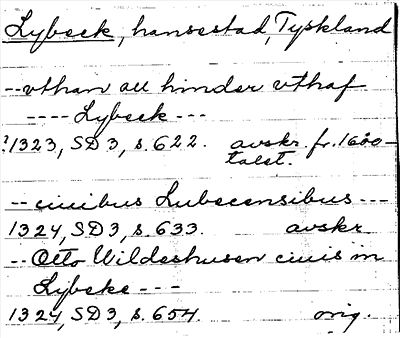 Lybeck, hansestad, Tyskland
-- vthan all hinder vthaf
---- Lybeck ---
?1323, SD 3, s. 622. avskr. fr. 1600-
talet.
-- ciuibus Lubecensibus ---
1324, SD 3, s. 633. avskr
-- Otto Wildeshusen ciuis in
Lybeke ---
1324, SD 3, s. 654. orig.